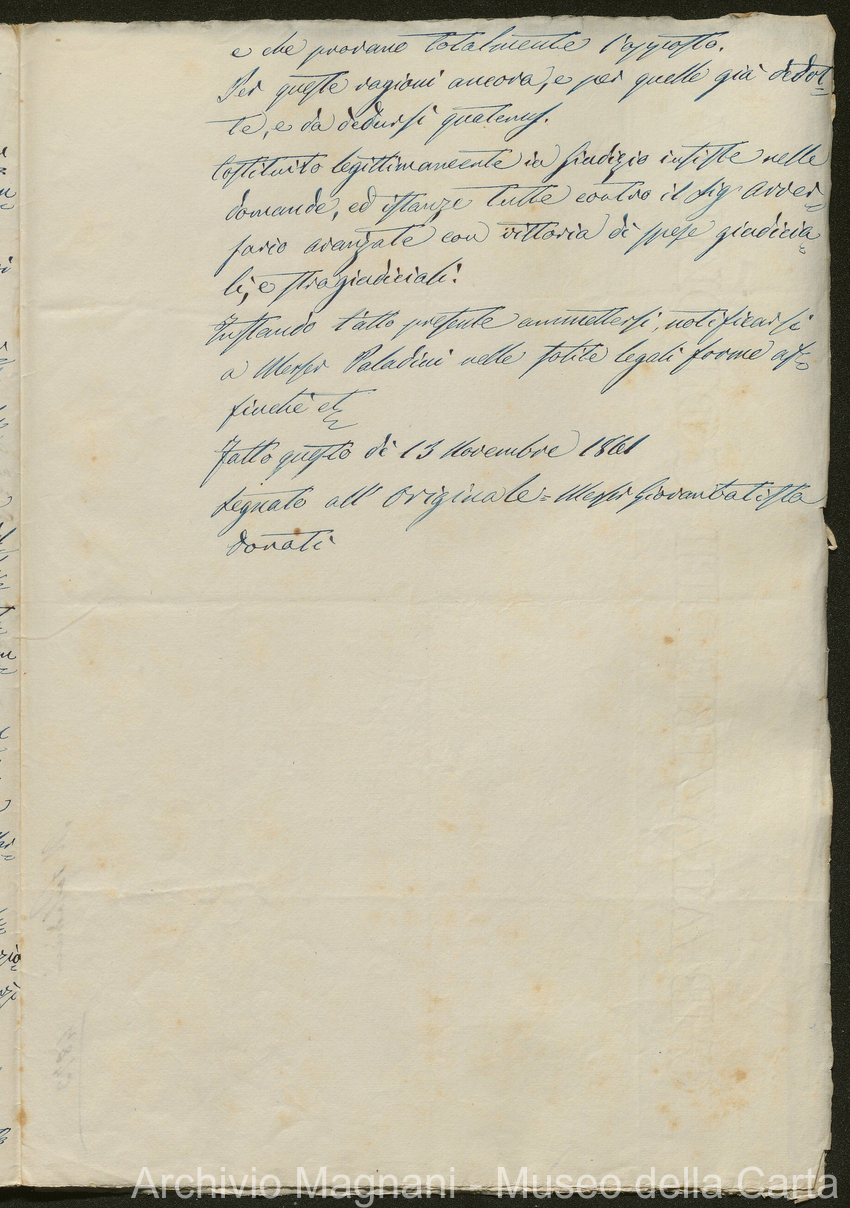 e che provano totalmente l'opposto.
Per queste ragioni ancora, e per quelle già dedot=
te, e da dedursi quatenus.
Costituito legittimamente in Giudizio insiste nelle
domande, ed istanze tutte contro il Sig Avver=
sario avanzate con vittoria di spese giudicia
li, e stragiudiciali.
Instando l'atto presente ammettersi, notificarsi
a Messer Paladini nelle solite legali forme af=
finchè etc
Fatto questo dì 13 Novembre 1861
Segnato all' Originale = Messer Giovanbatista
Donati
Archivio Magnani - Museo della Carta